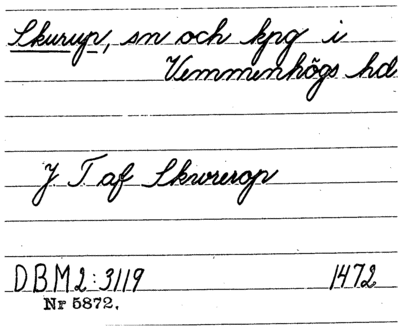 Skurup, sn och kpg i
Vemmenhögs hd
J T af Skwrerop
DBM2:3119 1472
Nr 5872.